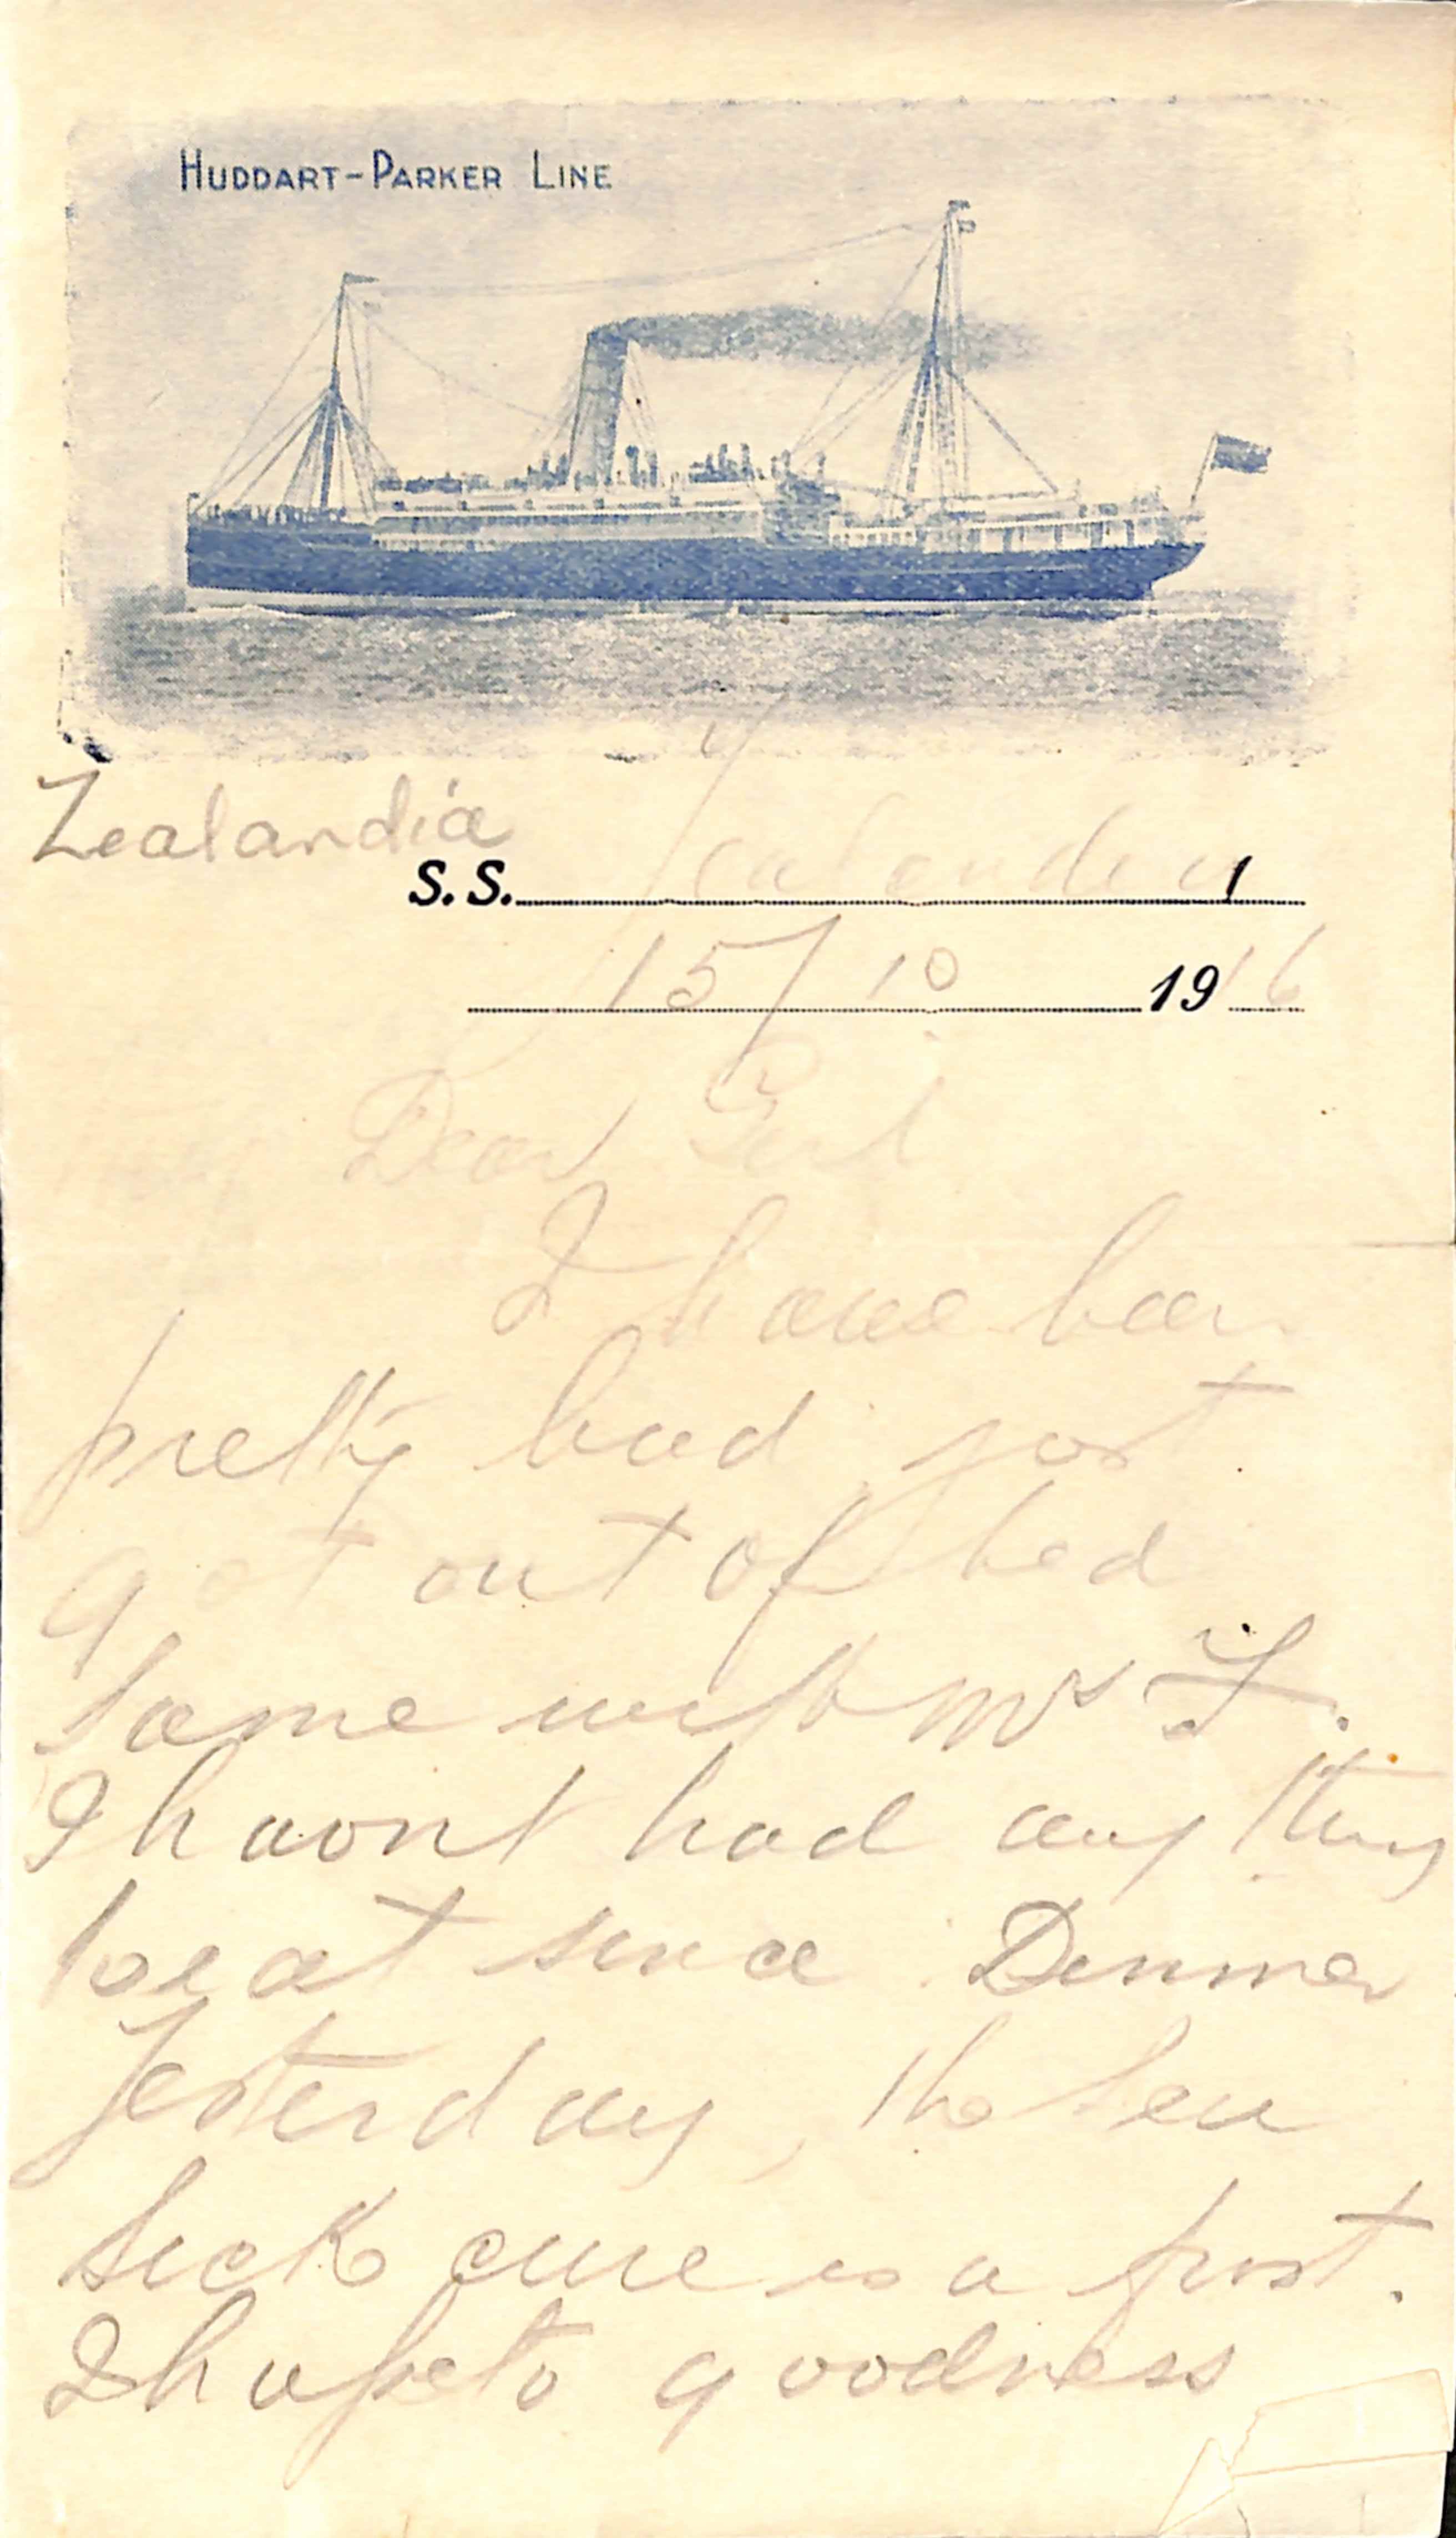 HUDDART-PARKER LINE
Zealandia
S.S. Zealandia
15/10 1916
Dear Gert
I have been
pretty bad just
got out of bed
Same with Mrs F.
I havont had anything
to eat since Dinner
Yesterday, the Sea
Sick cure is a frost.
I hope to goodness